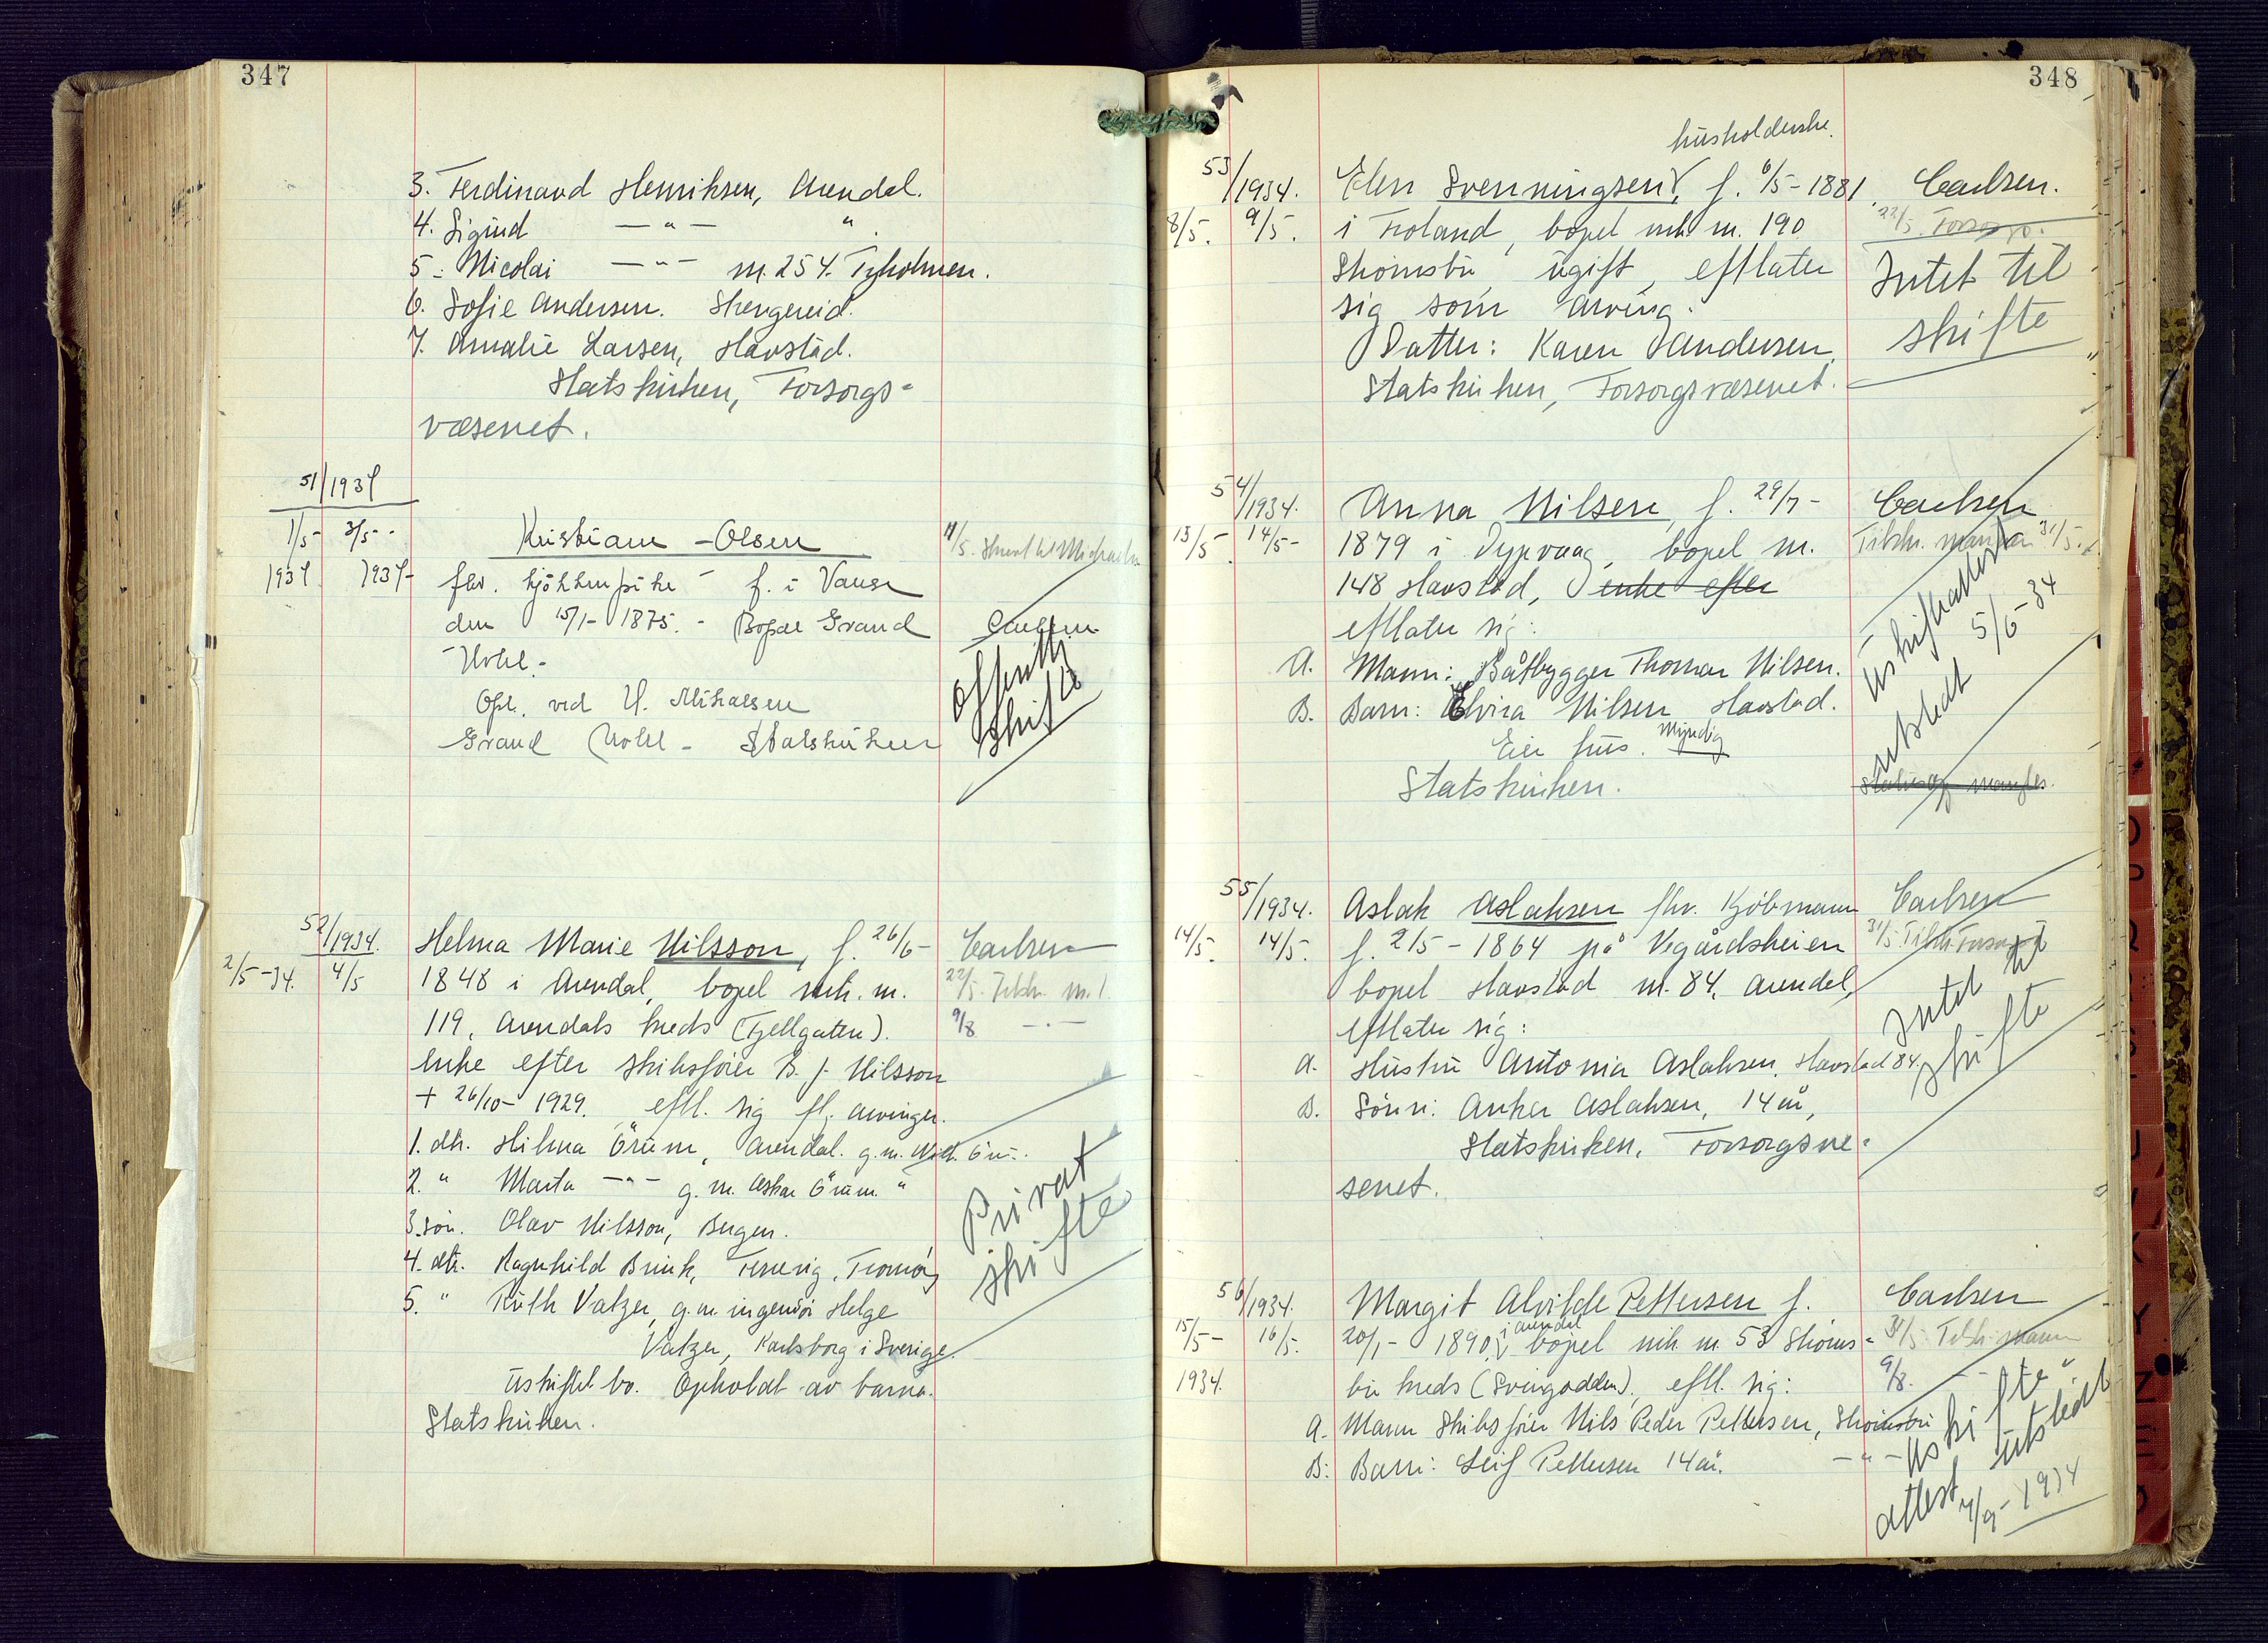 347
3. Ferdinand Henriksen, Arendal.
4. Sigurd — " — " .
5. Nicolai — " — m. 254. Tyholmen.
6. Sofie Andersen. Strengereid.
7. Amalie Larsen, Havstad.
Statskirken, Forsorgs-
væsenet.
51/1934
1/5- 3/5-- Kristiane - Olsen 11/5. til
1934 1934- fhv. kjøkkenpike - f. i Vanse
den 15/1- 1875. - Bopæl Grand Carlsen
Hotel. -
Opl. ved H. Offentlig
Grand Hotel - Statskirken skifte
52/1934. Helma Marie Nilsson, f. 26/6- Carlsen
2/5-34. 4/5 1848 i Arendal, bopel mtr. nr. 22/5. Tilskr. nr. 1.
119, Arendals kreds (Fjellgaten). 9/8 — " —
enke efter skibsfører B. J. Nilsson
+ 26/10- 1929. eftl. sig flg. arvinger.
1. dtr. Hilma Örum, Arendal. g. m. Örum.
2. " Marta — " — g. m. Oskar Örum. " Privat
3. søn. Olav Nilsson, Bergen. skifte
4. dtr. Ragnhild Brink, Færvig, Tromøy
5. " Ruth Vatzer, g. m. ingeniør Helge
Vatzer, Karlsborg i Sverige.
Uskiftet bo. Opholdt av barna.
Statskirken.
348
husholderske.
53/1934. Elen Svenningsen, f. 6/5-1881, Carlsen.
8/5. 9/5. i Froland, bopel mtr. nr. 190 22/5. Forsorgsv.
Strømsbu, ugift, efterlater Intet til
sig som arving: skifte
Datter: Karen Andersen,
Statskirken, Forsorgsvæsenet.
54/1934. Anna Nilsen, f. 29/7- Carlsen
13/5. 14/5- 1879 i Dypvaag, bopel nr. Tilskr. mannen 31/5.
148 Havstad, enke efter
efterlater sig: Uskifteattest
A. Mann: Båtbygger Thomas Nilsen. utstedt 5/6-34
B. Barn: Elvira Nilsen Havstad.
Eier hus. Myndig
Statskirken. mangler.
55/1934. Aslak Aslaksen fhv. Kjöbmann Carlsen
14/5. 14/5. f. 2/5-1864 på Vegårdsheien 31/5 Tilskr. Forsorgsv.
bopel Havstad nr. 84, Arendal, Intet til
efterlater sig: skifte
A. Hustru Antonia Aslaksen, Havstad 84.
B. Sönn: Anker Aslaksen, 14 år,
Statskirken, Forsorgsve-
senet.
56/1934. Margit Alvilde Pettersen f. Carlsen
15/5- 16/5. 20/1- 1890, i Arendal bopel mtr. nr. 53 Strøms- 31/5. Tilskr. mann
1934. bu kreds (Svingodden), eftl. sig: 9/8. — " —
A. Mann Skibsfører Nils Peder Pettersen, Strømsbu
B: Barn: Leif Pettersen 14 år. — " — Uskifte
attest utstedt
4/9-1934